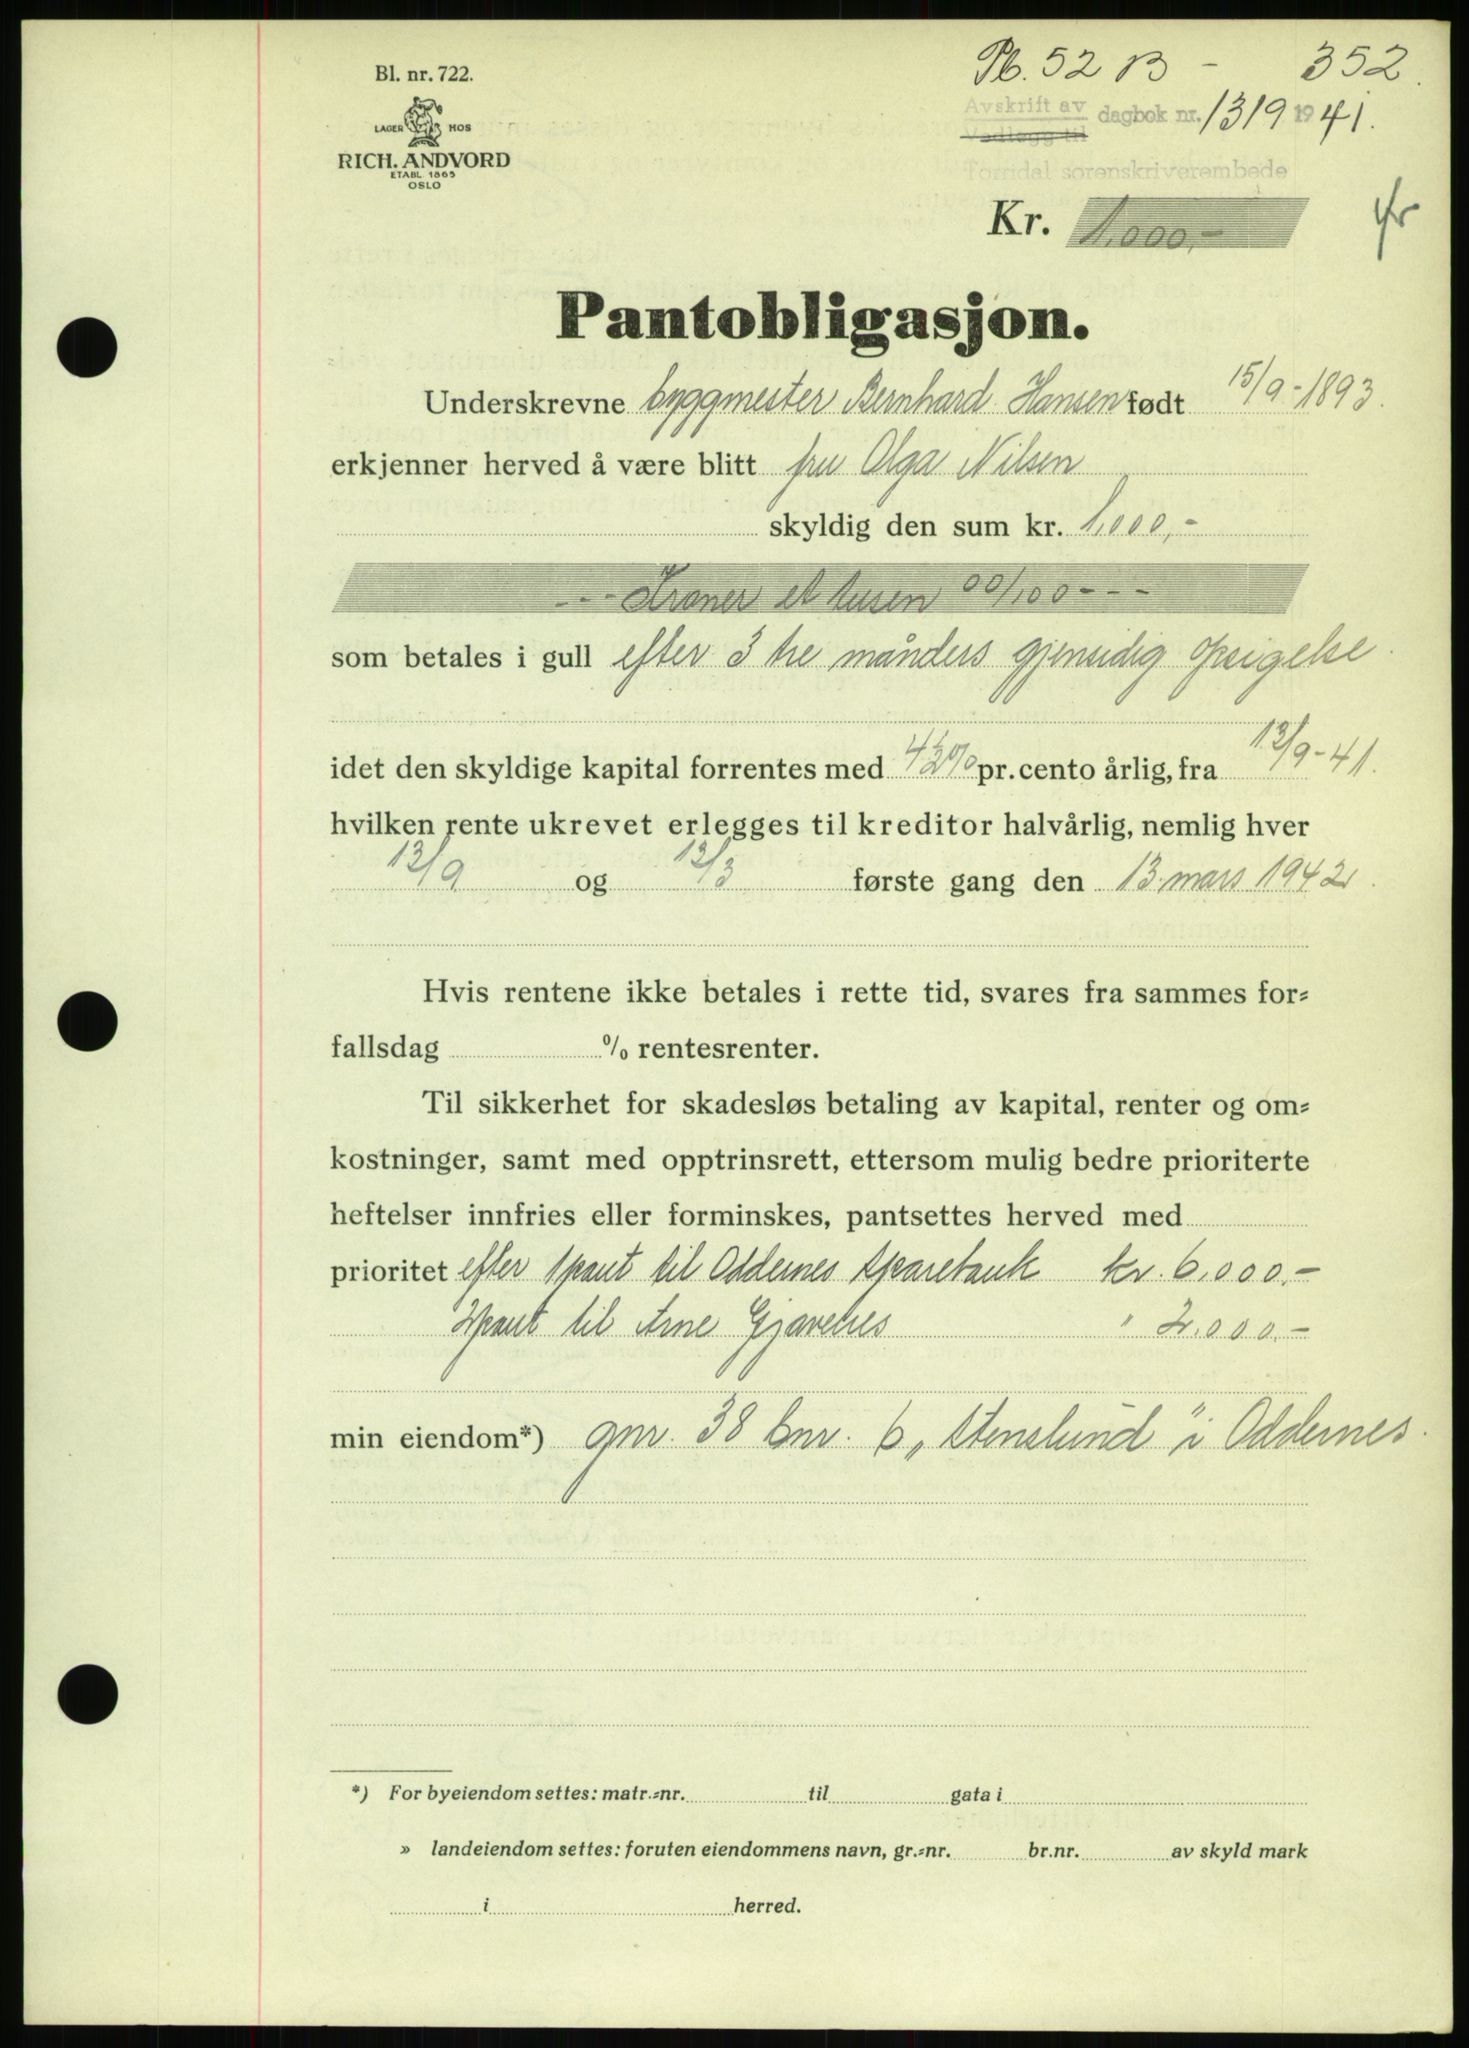 Pb. 52 B - 352.
Bl. nr. 722.
Avskrift av dagbok nr. 1319 1941.
Vedlegg til
LAGER HOS
RICH. ANDVORD
ETABL 1865
OSLO
Torridal sorenskriverembede
Kr. 1.000,-
Pantobligasjon.
Underskrevne byggmester Bernhard Hansen født 15/9-1893.
erkjenner herved å være blitt fru Olga Nilsen
skyldig den sum kr. 1.000,-
--- Kroner et tusen 00/100 ---
som betales i gull efter 3 tre månders gjensidig opsigelse.
idet den skyldige kapital forrentes med 4½% pr. cento årlig, fra 13/9-41.
hvilken rente ukrevet erlegges til kreditor halvårlig, nemlig hver
13/9 og 13/3 første gang den 13. mars 1942.
Hvis rentene ikke betales i rette tid, svares fra sammes for=
fallsdag % rentesrenter.
Til sikkerhet for skadesløs betaling av kapital, renter og om=
kostninger, samt med opptrinsrett, ettersom mulig bedre prioriterte
heftelser innfries eller forminskes, pantsettes herved med
prioritet efter 1 pant til Oddernes Sparebank kr. 6.000.-
2 pant til Arne " 2.000.-
min eiendom*) gnr. 38 bnr. 6 „Stenslund" i Oddernes.
*) For byeiendom settes: matr.=nr. til gata i
» landeiendom settes: foruten eiendommens navn, gr.=nr. br.nr. av skyld mark
i herred.